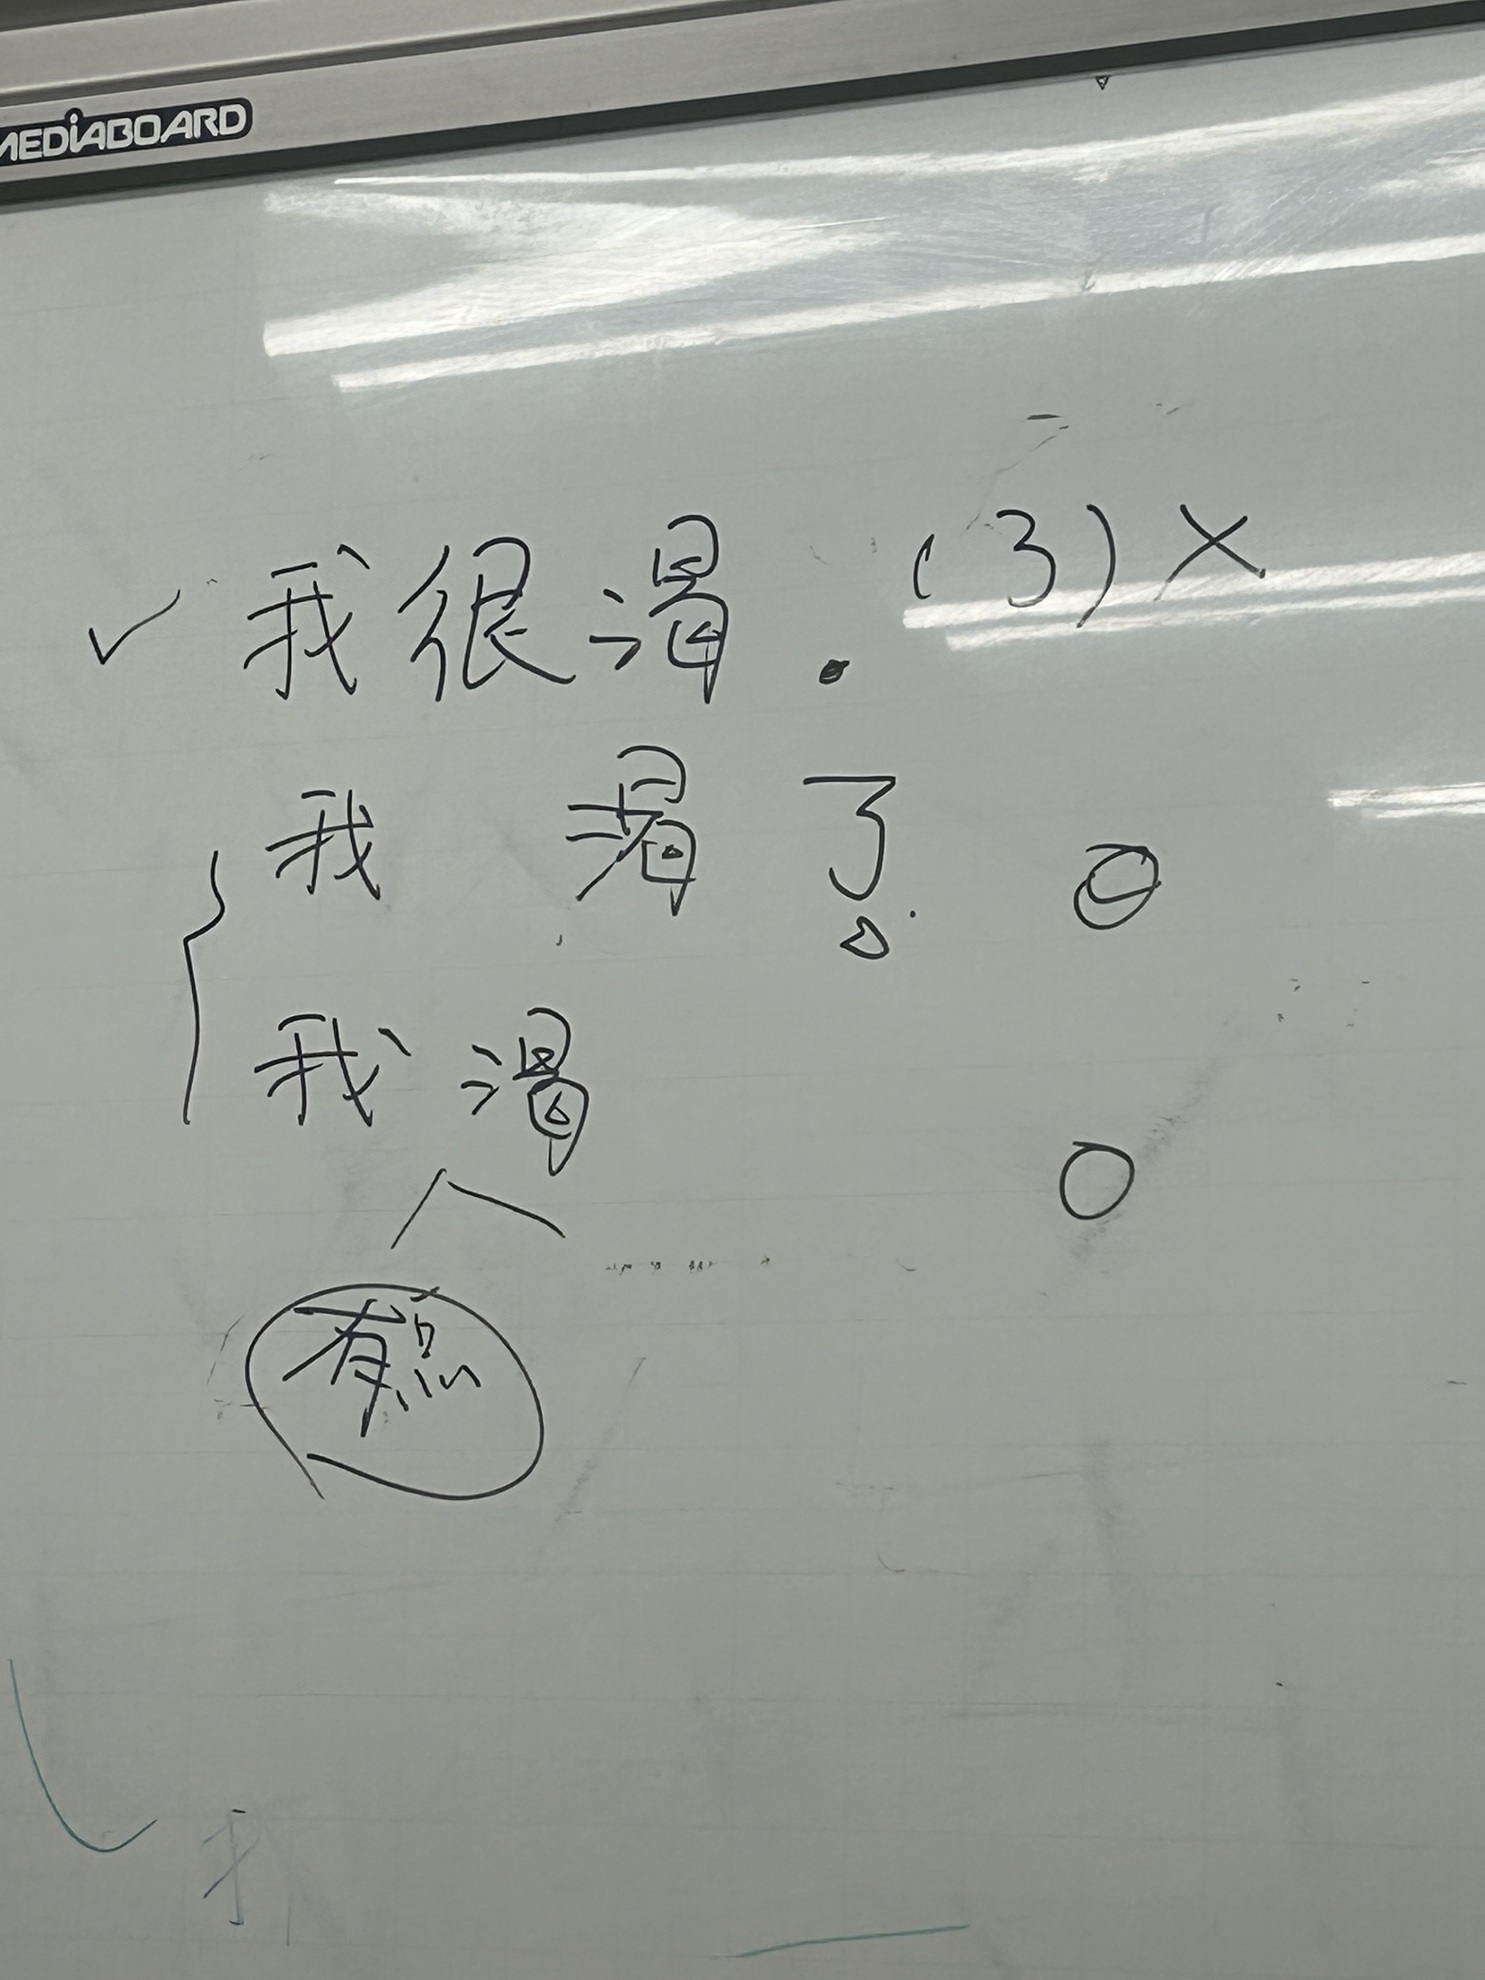 MEDiABOARD
✓ 我很渴. (3) ×
我 渴了。
我渴
有点